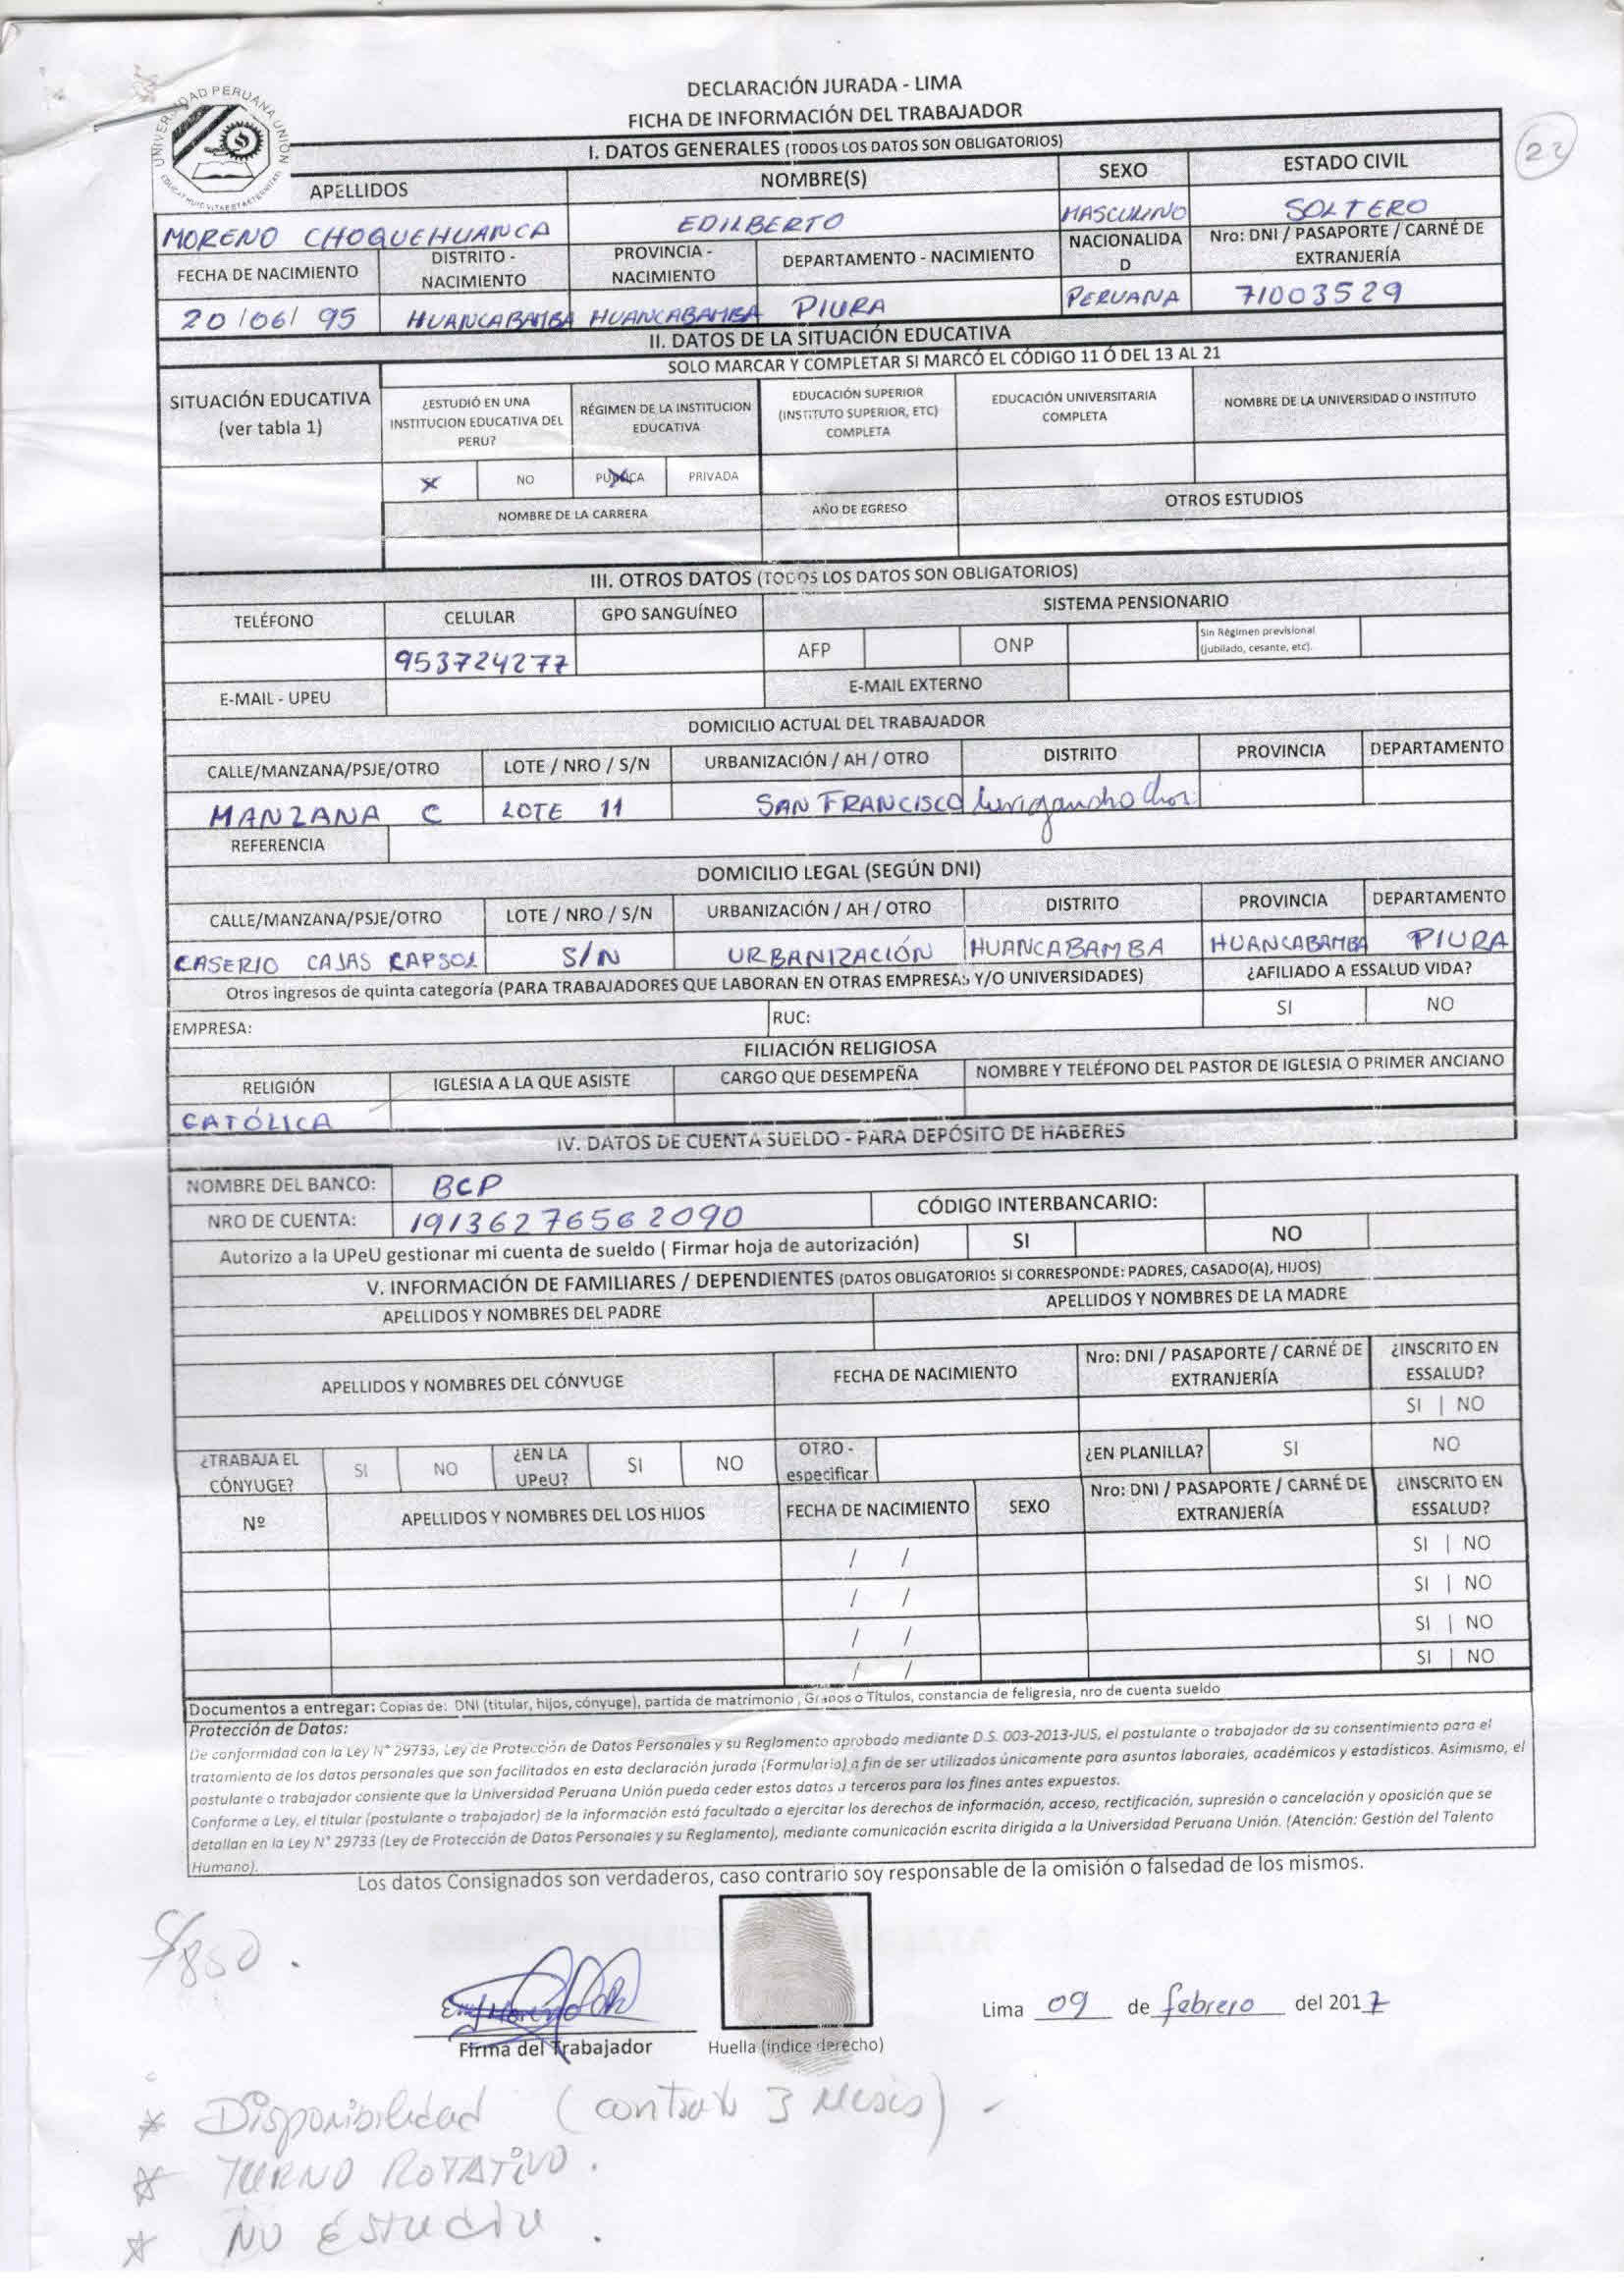 DECLARACIÓN JURADA - LIMA
FICHA DE INFORMACIÓN DEL TRABAJADOR
UNIVERSIDAD PERUANA UNIÓN
22
I. DATOS GENERALES (TODOS LOS DATOS SON OBLIGATORIOS)
APELLIDOS NOMBRE(S) SEXO ESTADO CIVIL
MORENO CHOQUEHUANCA EDILBERTO MASCULINO SOLTERO
FECHA DE NACIMIENTO DISTRITO - NACIMIENTO PROVINCIA - NACIMIENTO DEPARTAMENTO - NACIMIENTO NACIONALIDAD Nro: DNI / PASAPORTE / CARNÉ DE EXTRANJERÍA
20/06/95 HUANCABAMBA HUANCABAMBA PIURA PERUANA 71003529
II. DATOS DE LA SITUACIÓN EDUCATIVA
SOLO MARCAR Y COMPLETAR SI MARCÓ EL CÓDIGO 11 Ó DEL 13 AL 21
SITUACIÓN EDUCATIVA (ver tabla 1) ¿ESTUDIÓ EN UNA INSTITUCION EDUCATIVA DEL PERU? RÉGIMEN DE LA INSTITUCION EDUCATIVA EDUCACIÓN SUPERIOR (INSTITUTO SUPERIOR, ETC) COMPLETA EDUCACIÓN UNIVERSITARIA COMPLETA NOMBRE DE LA UNIVERSIDAD O INSTITUTO
X NO PUBLICA PRIVADA
NOMBRE DE LA CARRERA AÑO DE EGRESO OTROS ESTUDIOS
III. OTROS DATOS (TODOS LOS DATOS SON OBLIGATORIOS)
TELÉFONO CELULAR GPO SANGUÍNEO SISTEMA PENSIONARIO
953724277 AFP ONP Sin Régimen previsional (jubilado, cesante, etc).
E-MAIL - UPEU E-MAIL EXTERNO
DOMICILIO ACTUAL DEL TRABAJADOR
CALLE/MANZANA/PSJE/OTRO LOTE / NRO / S/N URBANIZACIÓN / AH / OTRO DISTRITO PROVINCIA DEPARTAMENTO
MANZANA C LOTE 11 SAN FRANCISCO Lurigancho Chos
REFERENCIA
DOMICILIO LEGAL (SEGÚN DNI)
CALLE/MANZANA/PSJE/OTRO LOTE / NRO / S/N URBANIZACIÓN / AH / OTRO DISTRITO PROVINCIA DEPARTAMENTO
CASERIO CAJAS CAPSOL S/N URBANIZACIÓN HUANCABAMBA HUANCABAMBA PIURA
Otros ingresos de quinta categoría (PARA TRABAJADORES QUE LABORAN EN OTRAS EMPRESAS Y/O UNIVERSIDADES) ¿AFILIADO A ESSALUD VIDA?
EMPRESA: RUC: SI NO
FILIACIÓN RELIGIOSA
RELIGIÓN IGLESIA A LA QUE ASISTE CARGO QUE DESEMPEÑA NOMBRE Y TELÉFONO DEL PASTOR DE IGLESIA O PRIMER ANCIANO
CATÓLICA
IV. DATOS DE CUENTA SUELDO - PARA DEPÓSITO DE HABERES
NOMBRE DEL BANCO: BCP
NRO DE CUENTA: 19136276562090 CÓDIGO INTERBANCARIO:
Autorizo a la UPeU gestionar mi cuenta de sueldo ( Firmar hoja de autorización) SI NO
V. INFORMACIÓN DE FAMILIARES / DEPENDIENTES (DATOS OBLIGATORIOS SI CORRESPONDE: PADRES, CASADO(A), HIJOS)
APELLIDOS Y NOMBRES DEL PADRE APELLIDOS Y NOMBRES DE LA MADRE
APELLIDOS Y NOMBRES DEL CÓNYUGE FECHA DE NACIMIENTO Nro: DNI / PASAPORTE / CARNÉ DE EXTRANJERÍA ¿INSCRITO EN ESSALUD?
SI | NO
¿TRABAJA EL CÓNYUGE? SI NO ¿EN LA UPeU? SI NO OTRO - especificar ¿EN PLANILLA? SI NO
Nº APELLIDOS Y NOMBRES DEL LOS HIJOS FECHA DE NACIMIENTO SEXO Nro: DNI / PASAPORTE / CARNÉ DE EXTRANJERÍA ¿INSCRITO EN ESSALUD?
/ / SI | NO
/ / SI | NO
/ / SI | NO
/ / SI | NO
Documentos a entregar: Copias de: DNI (titular, hijos, cónyuge), partida de matrimonio , Grados o Títulos, constancia de feligresia, nro de cuenta sueldo
Protección de Datos:
De conformidad con la Ley N° 29733, Ley de Protección de Datos Personales y su Reglamento aprobado mediante D.S. 003-2013-JUS, el postulante o trabajador da su consentimiento para el
tratamiento de los datos personales que son facilitados en esta declaración jurada (Formulario) a fin de ser utilizados únicamente para asuntos laborales, académicos y estadísticos. Asimismo, el
postulante o trabajador consiente que la Universidad Peruana Unión pueda ceder estos datos a terceros para los fines antes expuestos.
Conforme a Ley, el titular (postulante o trabajador) de la información está facultado a ejercitar los derechos de información, acceso, rectificación, supresión o cancelación y oposición que se
detallan en la Ley N° 29733 (Ley de Protección de Datos Personales y su Reglamento), mediante comunicación escrita dirigida a la Universidad Peruana Unión. (Atención: Gestión del Talento
Humano).
Los datos Consignados son verdaderos, caso contrario soy responsable de la omisión o falsedad de los mismos.
S/850.
Lima 09 de febrero del 2017
Firma del Trabajador Huella (índice derecho)
* Disponibilidad (contrato 3 meses) -
* TURNO ROTATIVO.
* NO ESTUDIA.